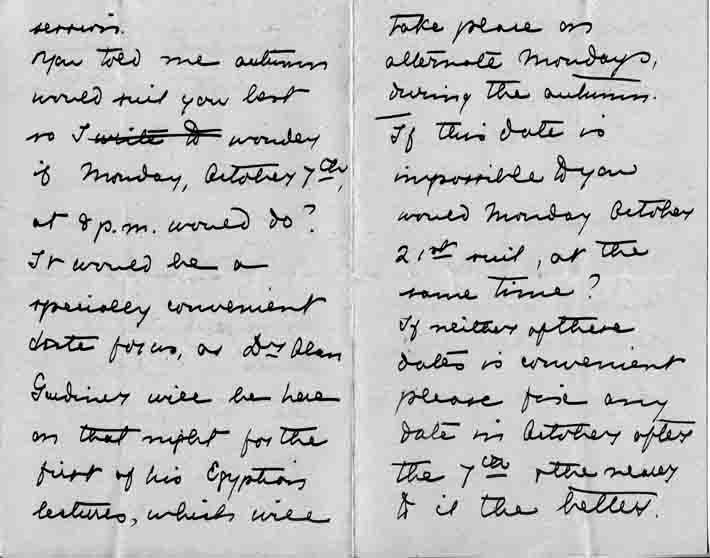 session.
You told me autumn
would suit you best
so I ~~write to~~ wonder
if Monday, October 7th,
at 8 p.m. would do?
It would be a
specially convenient
date for us, as Dr Alan
Gardiner will be here
on that night for the
first of his Egyptian
lectures, which will
take place on
alternate Mondays,
during the autumn.
If this date is
impossible to you
would Monday October
21st suit, at the
same time?
If neither of these
dates is convenient
please fix any
date in October after
the 7th & the nearer
to it the better.